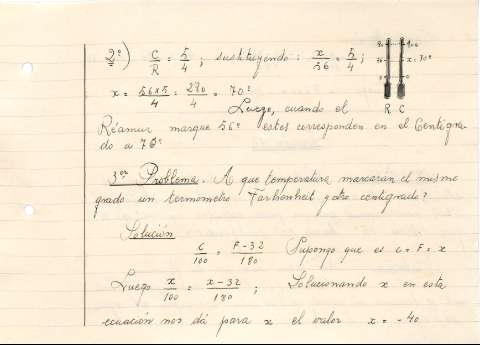 2º) C/R = 5/4 ; sustituyendo: x/56 = 5/4 ;
80 100
56 x = 70º
0 0
R C
x = 56×5/4 = 280/4 = 70º
Luego, cuando el
Réamur marque 56º estos corresponden en el Centigra-
do a 70º
3er Problema. A que temperatura marcaran el mismo
grado un termometro Farhenheit y otro centigrado?
Solución
C/100 = F-32/180 Supongo que es C = F = x
Luego x/100 = x-32/180 ; Solucionando x en esta
ecuación nos dá para x el valor x = -40